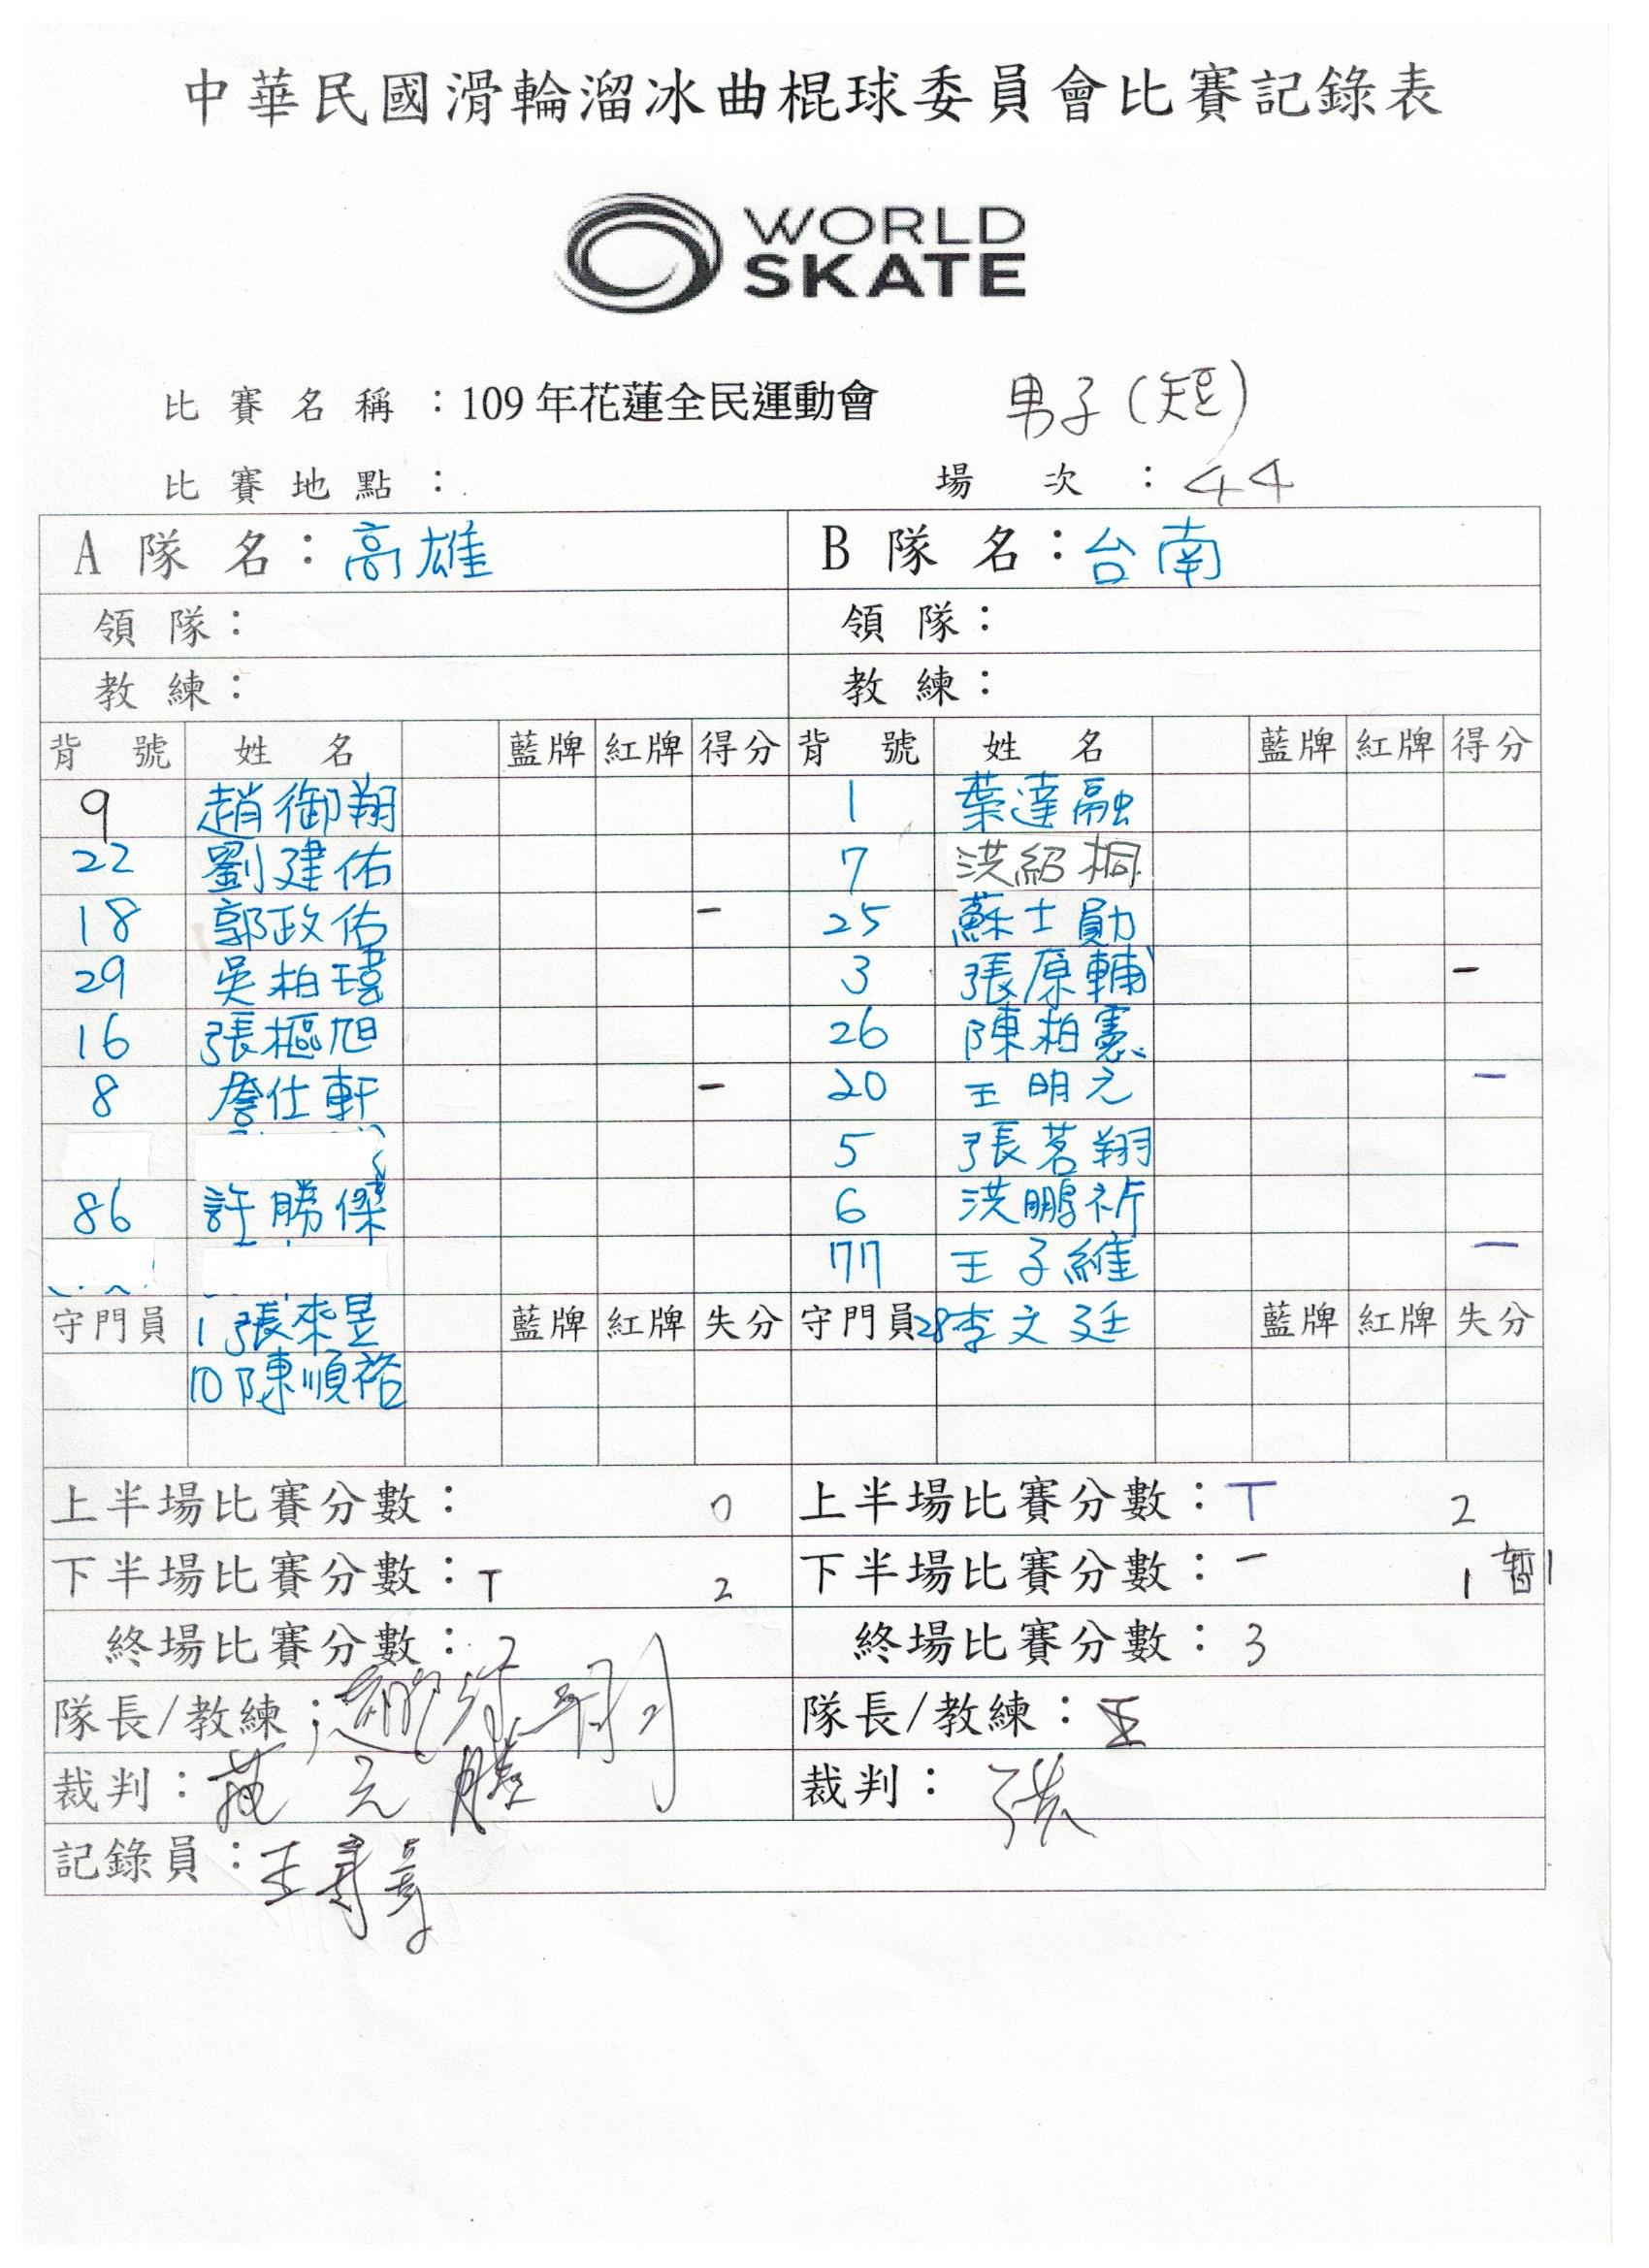 中華民國滑輪溜冰曲棍球委員會比賽記錄表
WORLD
SKATE
比賽名稱：109年花蓮全民運動會 男子(短)
比賽地點： 場次：44
A 隊名：高雄 B 隊名：台南
領隊： 領隊：
教練： 教練：
背號 姓名 藍牌 紅牌 得分 背號 姓名 藍牌 紅牌 得分
9 趙御翔 1 葉達融
22 劉建佑 7 洪紹桐
18 郭政佑 一 25 蘇士勛
29 吳柏 3 張原輔 一
16 張樞旭 26 陳柏憲
8 詹仕軒 一 20 王明元 一
5 張茗翔
86 許勝傑 6 洪鵬祈
77 王子維 一
守門員 1 張來昱 藍牌 紅牌 失分 守門員 28 李文廷 藍牌 紅牌 失分
10 陳順裕
上半場比賽分數： 0 上半場比賽分數：T 2
下半場比賽分數：T 2 下半場比賽分數：一 1 暫1
終場比賽分數：2 終場比賽分數：3
隊長/教練： 隊長/教練：王
裁判： 裁判：張
記錄員：王